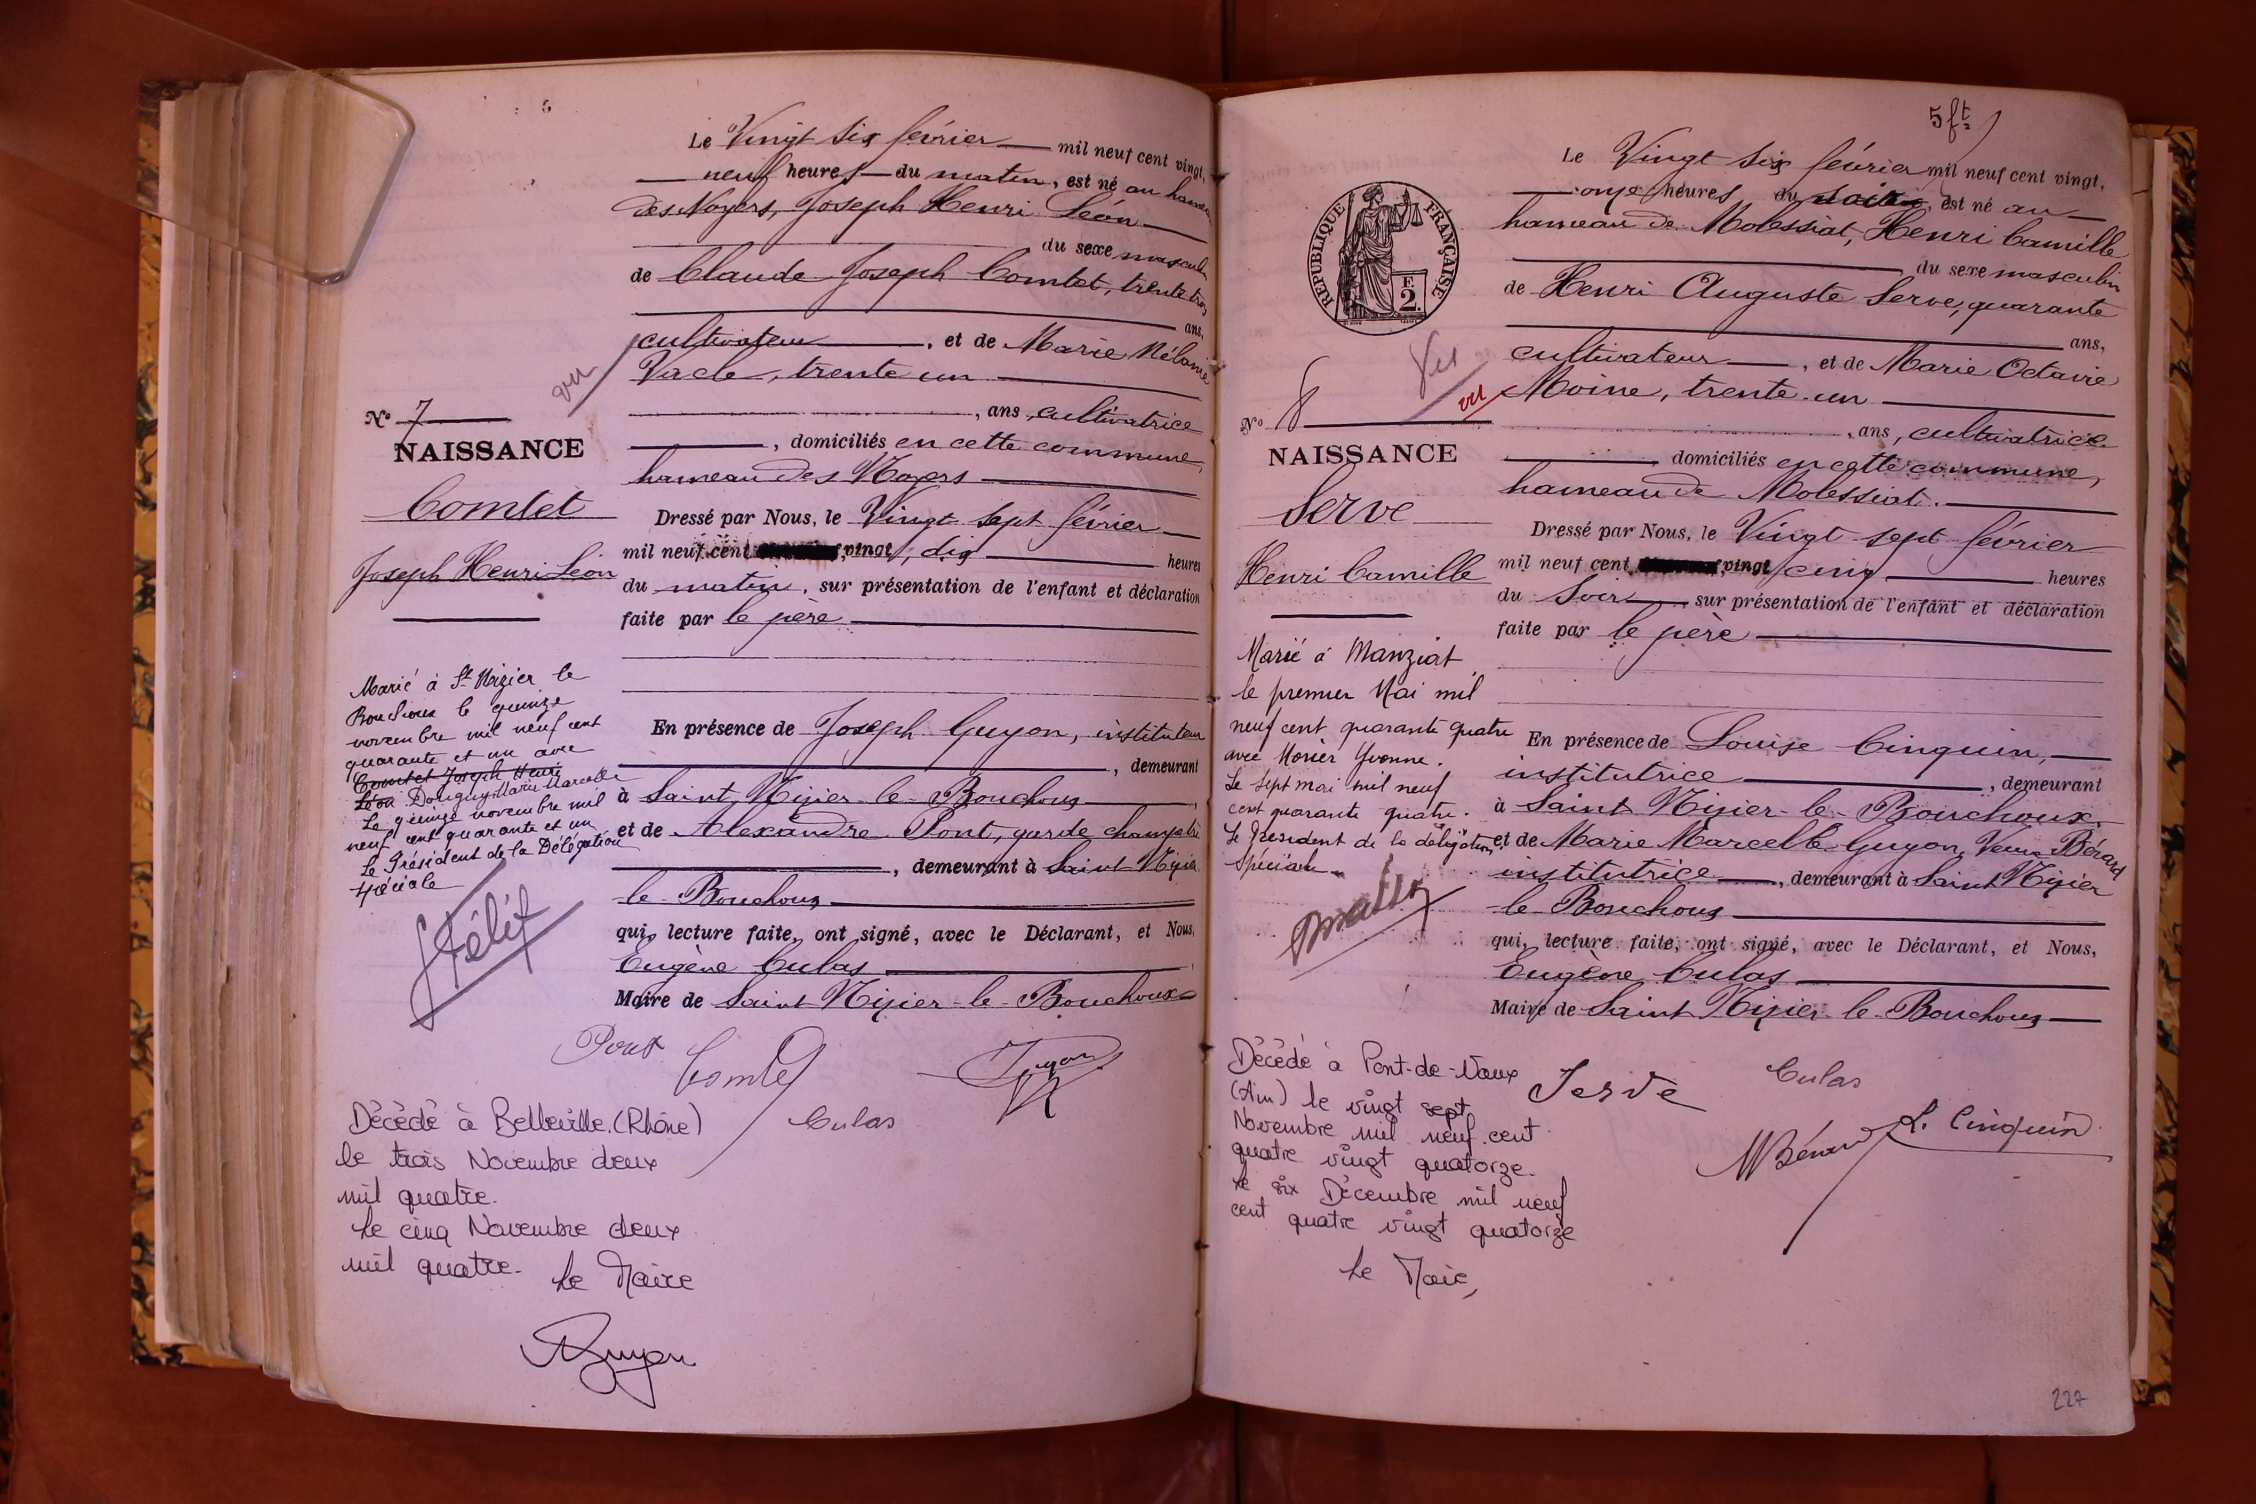 Le Vingt six février mil neuf cent vingt,
neuf heures du matin, est né au hameau
des Noyers, Joseph Henri Léon
du sexe masculin
de Claude Joseph Comtet, trente trois
ans,
cultivateur, et de Marie Mélanie
vu
Vacle, trente un
, ans, cultivatrice
No 7
NAISSANCE
, domiciliés en cette commune,
hameau des Noyers
Comtet
Joseph Henri Léon
Dressé par Nous, le Vingt sept février
mil neuf cent vingt, dix heures
du matin, sur présentation de l'enfant et déclaration
faite par le père
Marié à St Nizier le
Bouchoux le quinze
novembre mil neuf cent
quarante et un avec
Comtet Joseph Henri
Léon Donguy Marie Marcelle
Le quinze novembre mil
neuf cent quarante et un
Le Président de la Délégation
spéciale
En présence de Joseph Guyon, instituteur
, demeurant
à Saint Nizier-le-Bouchoux,
et de Alexandre Pont, garde champêtre
, demeurant à Saint Nizier
le Bouchoux
qui, lecture faite, ont signé, avec le Déclarant, et Nous,
Eugène Culas
Maire de Saint Nizier-le-Bouchoux
Pont
Comtet
Guyon
Culas
Décédé à Belleville (Rhône)
le trois Novembre deux
mil quatre.
Le cinq Novembre deux
mil quatre. Le Maire
5 ft
Le Vingt six février mil neuf cent vingt,
onze heures du soir, est né au
hameau de Molessiat, Henri Camille
du sexe masculin
de Henri Auguste Serve, quarante
ans,
cultivateur, et de Marie Octavie
Vu
vu
Moine, trente-un
, ans, cultivatrice
RÉPUBLIQUE FRANÇAISE
E
2.
No 8
NAISSANCE
domiciliés en cette commune,
hameau de Molessiat.
Serve
Henri Camille
Dressé par Nous, le Vingt-sept février
mil neuf cent vingt, cinq heures
du soir sur présentation de l'enfant et déclaration
faite par le père
Marié à Manziat
le premier Mai mil
neuf cent quarante quatre
avec Morier Yvonne.
Le sept mai mil neuf
cent quarante quatre.
Le Président de la délégation
Spéciale.
En présence de Louise Cinquin,
institutrice, demeurant
à Saint Nizier-le-Bouchoux,
et de Marie Marcelle Guyon, Veuve Bérard
institutrice, demeurant à Saint Nizier
le Bouchoux
qui, lecture faite, ont signé, avec le Déclarant, et Nous,
Eugène Culas
Maire de Saint Nizier-le-Bouchoux
Serve
Culas
L. Cinquin
Décédé à Pont-de-Vaux
(Ain) le vingt sept
Novembre mil neuf cent
quatre vingt quatorze.
Le six Décembre mil neuf
cent quatre vingt quatorze
Le Maire,
227